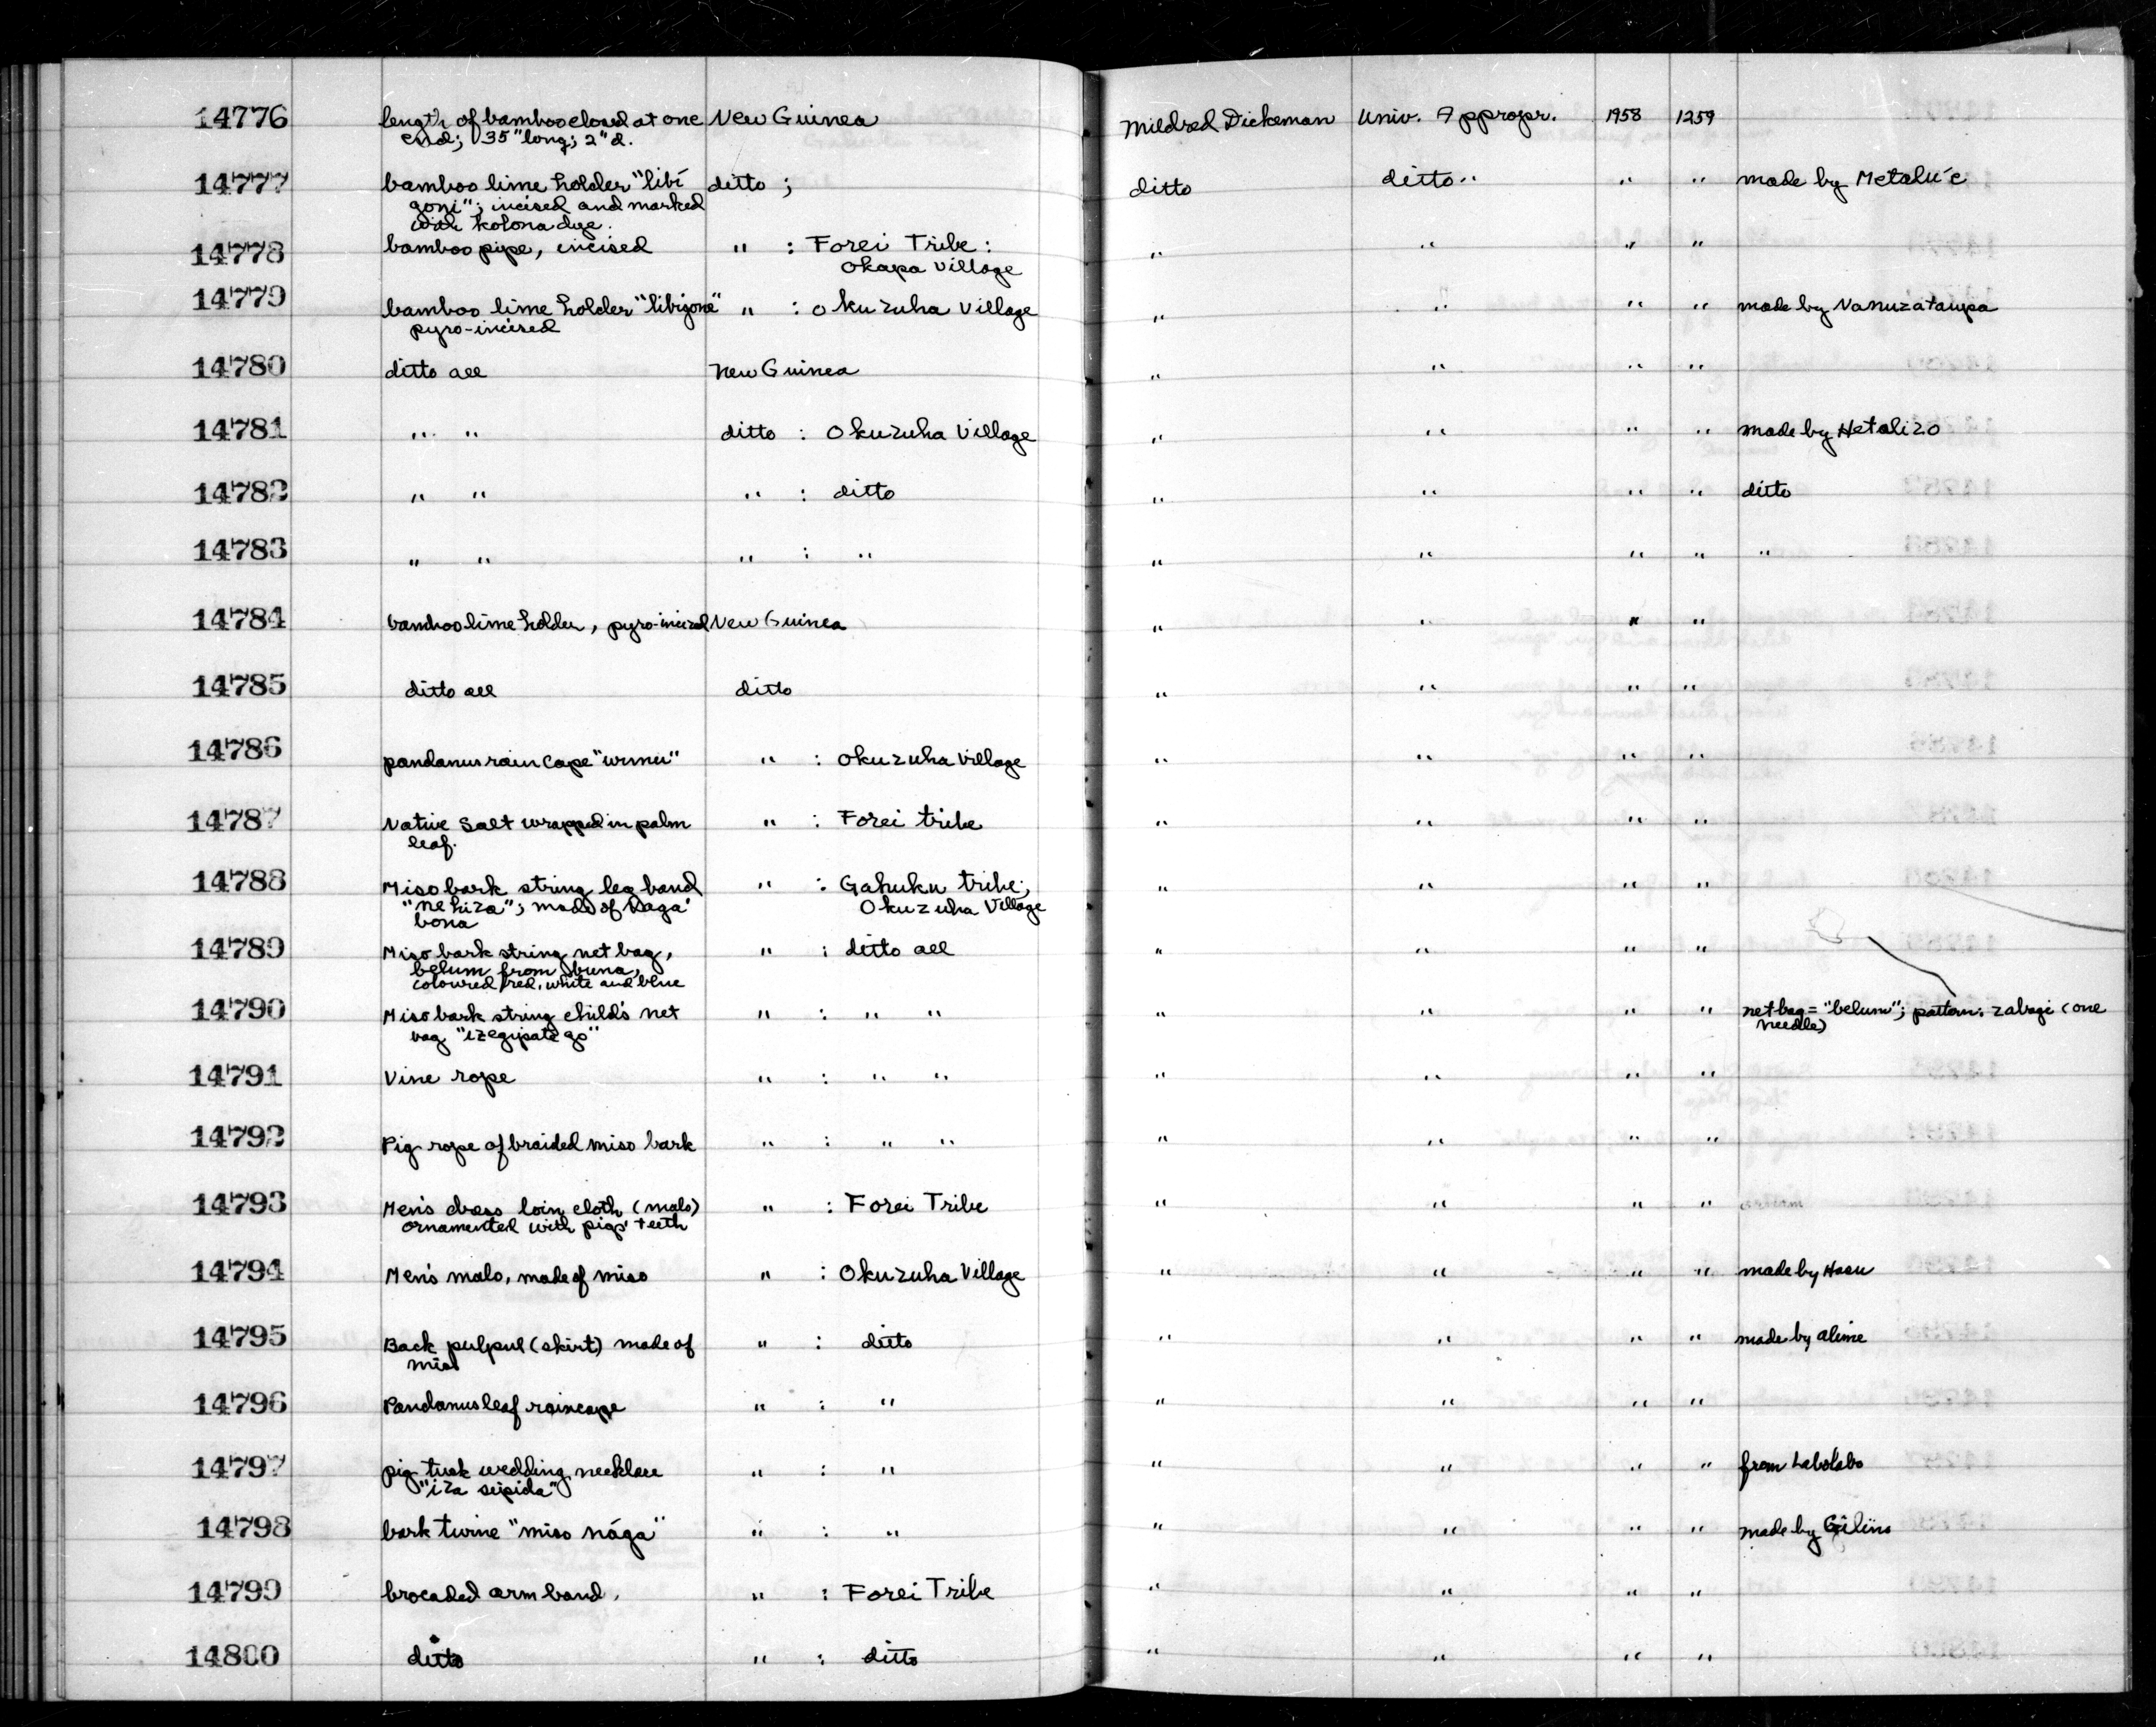 14776 length of bamboo closed at one New Guinea Mildred Dickeman Univ. Appropr. 1958 1259
end; 35" long; 2" d.
14777 bamboo lime holder "libi ditto ; ditto ditto " " " made by Metalu'e
goni"; incised and marked
with kolona dye.
14778 bamboo pipe, incised " : Forei Tribe : " " " "
Okapa Village
14779 bamboo lime holder "libigone" " : Okuzuha Village " " " " made by Nanuzataupa
pyro-incised
14780 ditto all New Guinea " " " "
14781 " " ditto : Okuzuha Village " " " " made by Hetalizo
14782 " " " : ditto " " " " ditto
14783 " " " : " " " " " "
14784 bamboo lime holder, pyro-incised New Guinea " " " "
14785 ditto all ditto " " " "
14786 pandanus rain cape " : Okuzuha Village " " " "
14787 Native Salt wrapped in palm " : Forei tribe " " " "
leaf.
14788 Miso bark string leg band " : Gahuku tribe; " " " "
"ne hiza"; made of Okuzuha Village
bona
14789 Miso bark string net bag, " : ditto all " " " "
belum from buna,
coloured red, white and blue
14790 Miso bark string child's net " : " " " " " " net bag = "belum"; pattern: zabagi (one
bag "izegipate go" needle)
14791 Vine rope " : " " " " " "
14792 Pig rope of braided miso bark " : " " " " " "
14793 Men's dress loin cloth (malo) " : Forei Tribe " " " "
ornamented with pigs' teeth
14794 Men's malo, made of miso " : Okuzuha Village " " " " made by Hasu
14795 Back pulpul (skirt) made of " : ditto " " " " made by alime
miso
14796 Pandanus leaf raincape " : " " " " "
14797 pig tusk wedding necklace " : " " " " " from Labolabo
"iza seipida"
14798 bark twine "miso nága" " : " " " " " made by
14799 brocaded arm band. " : Forei Tribe " " " "
14800 ditto " : ditto " " " "